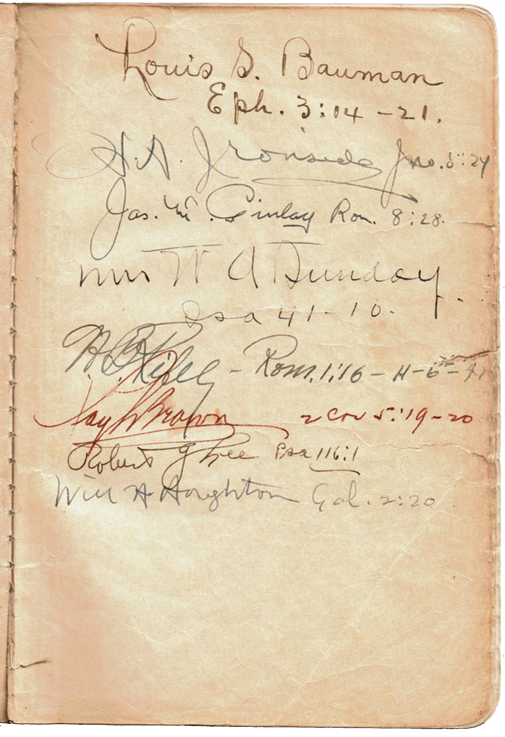 Louis S. Bauman
Eph. 3:14-21.
H.A. Ironside Jno. 5:24
Jas. M. Ginlay Rom. 8:28.
Mrs W A Sunday
Isa 41-10.
W B Riley - Rom. 1:16 - 11-6-41
Roy L Brown 2 Cor 5:19-20
Robert G Lee Psa 116:1
Will H Houghton Gal. 2:20